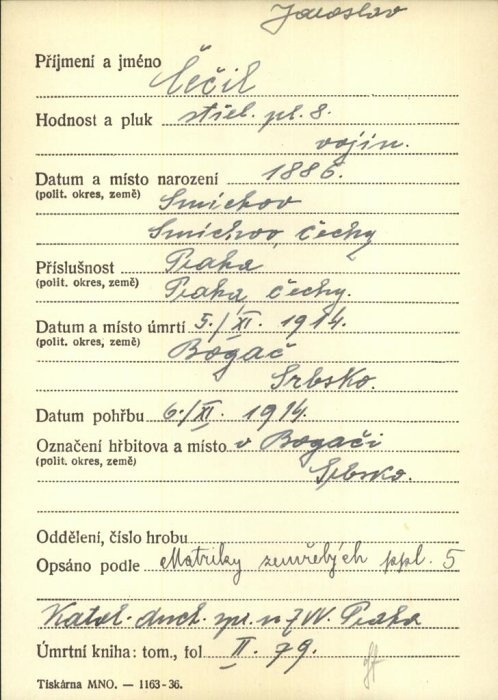 Jaroslav
Příjmení a jméno Čečil
Hodnost a pluk střel. pl. 8.
vojín.
Datum a místo narození 1886.
(polit. okres, země) Smíchov
Smíchov, Čechy
Příslušnost Praha
(polit. okres, země) Praha, Čechy.
Datum a místo úmrtí 5./XI. 1914.
(polit. okres, země) Bogač
Srbsko.
Datum pohřbu 6./XI. 1914.
Označení hřbitova a místo v Bogači
(polit. okres, země) Srbsko.
Oddělení, číslo hrobu
Opsáno podle Matriky zemřelých ppl. 5
Katol. duch. spr. n ZVV. Praha
Úmrtní kniha: tom., fol II. 79.
Tiskárna MNO. — 1163-36.